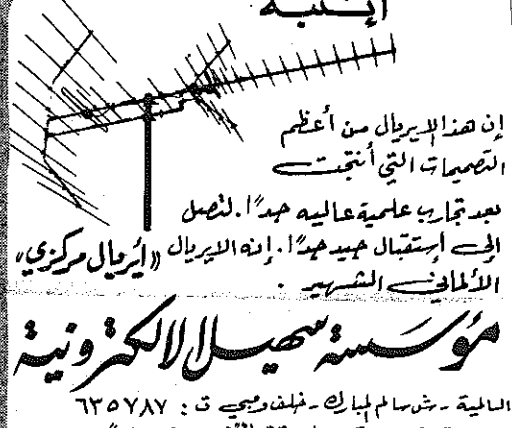 إن هذا الايريال من أعظم
التصميمات التي أنتجت
بعد تجارب علمية عاليه جداً. لتصل
إلى إستقبال جيد جداً. إنه الايريال
الألماني الشهير.
«أيريال مركزي»
مؤسسة سهيل الالكترونية
السالمية - ش سالم المبارك - خلف ومبي ت: ٦٣٥٧٨٧